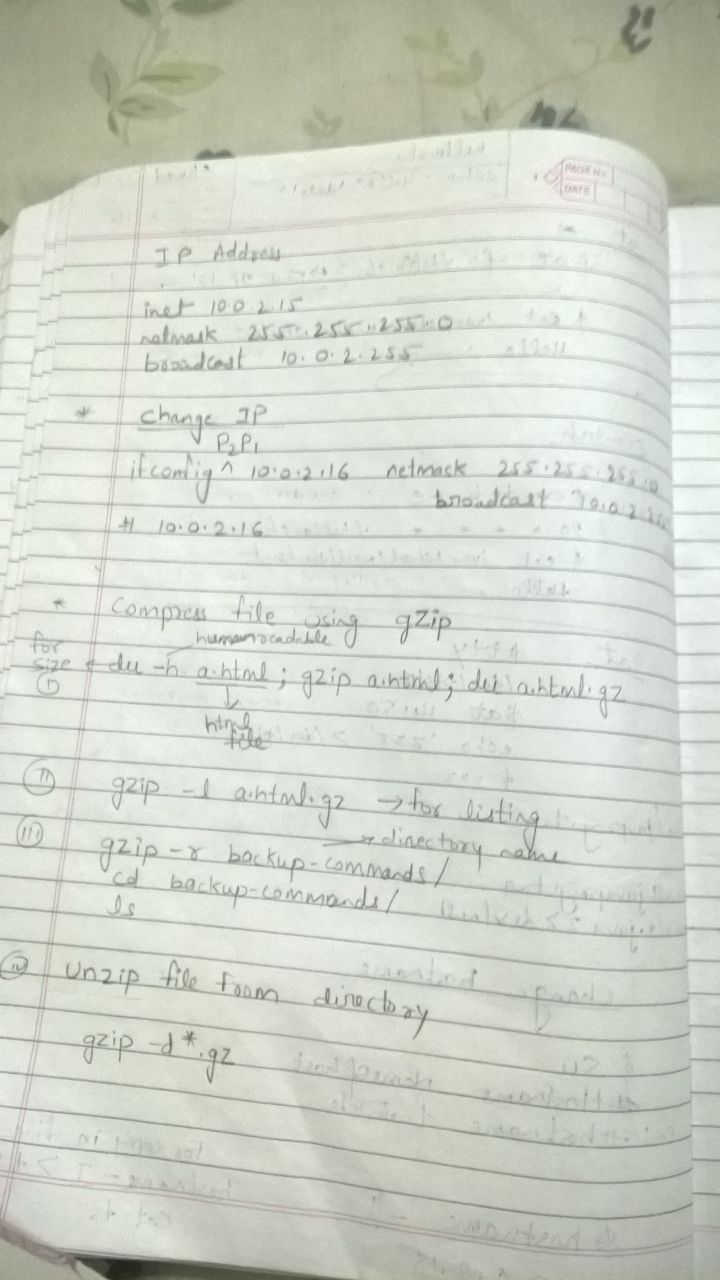 PAGE NO.
DATE
IP Address
inet 10.0.2.15
netmask 255.255.255.0
broadcast 10.0.2.255
* Change IP
P2P1
ifconfig ^ 10.0.2.16 netmask 255.255.255.0
broadcast 10.0.2.255
# 10.0.2.16
* Compress file using gzip
humanreadable
for
size # du -h a.html ; gzip a.html ; du a.html.gz
(i)
↓
html
file
(ii) gzip -l a.html.gz → for listing
→ directory name
(iii) gzip -r backup-commands/
cd backup-commands/
ls
(iv) unzip file from directory
gzip -d *.gz